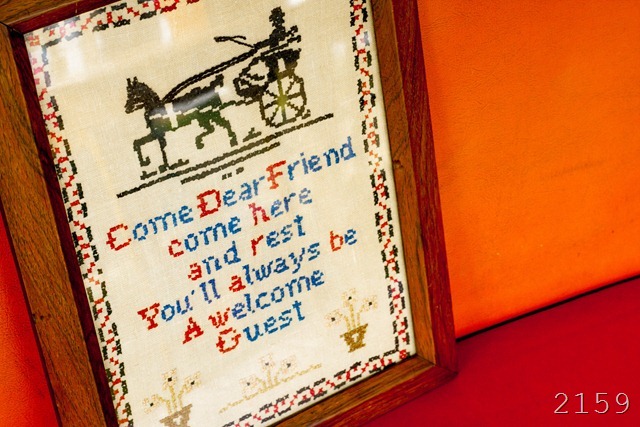 Come Dear Friend
come here
and rest
You'll always be
A welcome
Guest
2159